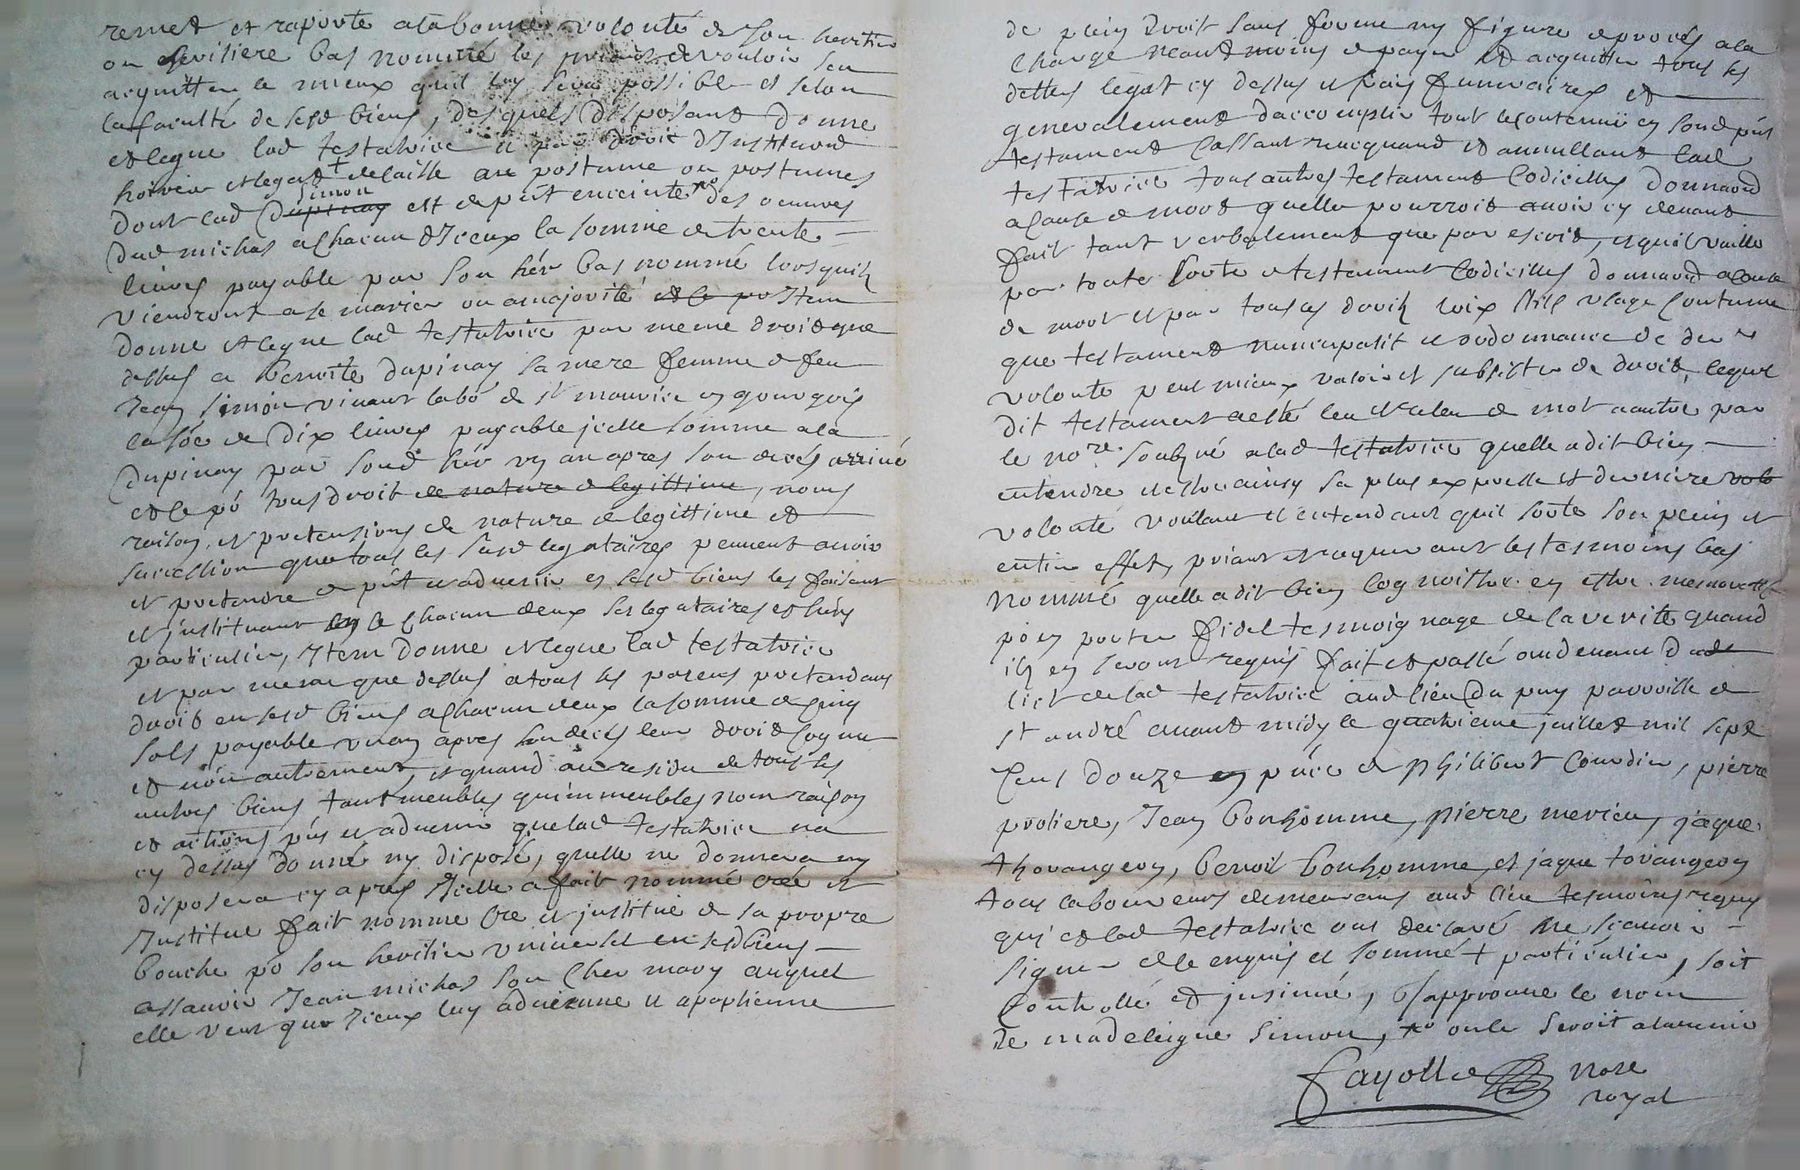 remet et raporte a la bonne volonté de son heritier
ou heritiere bas nommé les priant de vouloir sen
acquitter le mieux quil luy sera possible et selon
la faculté de sesd biens, desquels disposant donne
et legue lad testatrice et par droit d'Institution
et legat delaissé au postume ou postumes
simon
dont lad dupinay est de pnt enceinte des oeuvres
dud michas a chacun d'Iceux la somme de trente
livres payable par son hér bas nommé lorsquilz
viendront a se marier ou a majorité et le p Item
donne et legue lad testatrice par meme droit que
dessus a benoite dupinay sa mere femme de feu
Jean simon vivant labo de st maurice en gourgois
la soe de dix livres payable jcelle somme a la
dupinay par sond hér un an apres son decés arrivé
et le po tous droit de nature de legittime, noms
raison, et pretensions de nature de legittime et
succession que tous les susd legataires peuvent avoir
et pretendre de pnt et advenir en sesd biens les faisant
et instituant en ce chacun deux ses legataires et hérs
particulier, Item donne et legue lad testatrice
et par meme que dessus a tous les parens pretendans
droit en sesd biens a chacun deux la somme de cinq
sols payable un an apres son deces leur droit soy mu
et non autrement, et quand au residu de tous les
autres biens tant meubles quimmeubles nom raison
et actions pns et advenir que lad testatrice na
cy dessus donné ny disposé, quelle ne donnera ny
disposera cy apres Icelle a fait nommé créé et
Institue fait nomme cre et justitue de sa propre
bouche po son heritier universel en sesd biens
assavoir Jean michas son cher mary auquel
elle veut que Iceux luy advienne et apartienne
de plein droit sans forme ny figure de procés a la
charge neantmoins de payer et acquitter tous les
dettes legat cy dessus et frais funeraires et
generalement daccomplir tout le contenu en sond pnt
testament cassant revoquand et annullant lad
testatrice tous autres testament codicilles donnaon
a cause de mort quelle pourroit avoir cy devant
fait tant verbalement que par escrit, et quil vaille
par toute sorte de testament codicilles donnaon a cause
de mort et par tous us droitz loix stils usage coutume
que testament nuncupatif et ordonnance de der re
volonte peut mieux valoir et subsister de droit, lequel
dit testament a esté leu et releu de mot a autre par
le nore soubsné a lad testatrice quelle a dit bien
entendre et estre ainsy sa plus expresse et derniere volo
volonté voulant et entendant quil sorte son plein et
entier effet, priant et requerant les tesmoins bas
nommé quelle a dit bien cognoistre en estre memoratifs
po en porter fidel tesmoignage de la verité quand
ilz en seront requis fait et passé au devant du
lict de lad testatrice aud lieu du puy parroisse de
st andré avant midy le quatrieme juillet mil sept
cens douze en pnce de philibert coindier, pierre
proliere, Jean bonhomme, pierre merieu, jaque
thovangeon, benoit bonhomme et jaque tovangeon
tous laboureurs demeurans aud lieu tesmoins requis
qui et lad testatrice ont declaré ne scavoir
signer de ce enquis et sommé + particulier, soit
controllé et jnsinué, Japprouve le nom
de madeleigne simon, ou le seroit a lavenir
fayolle nore
royal